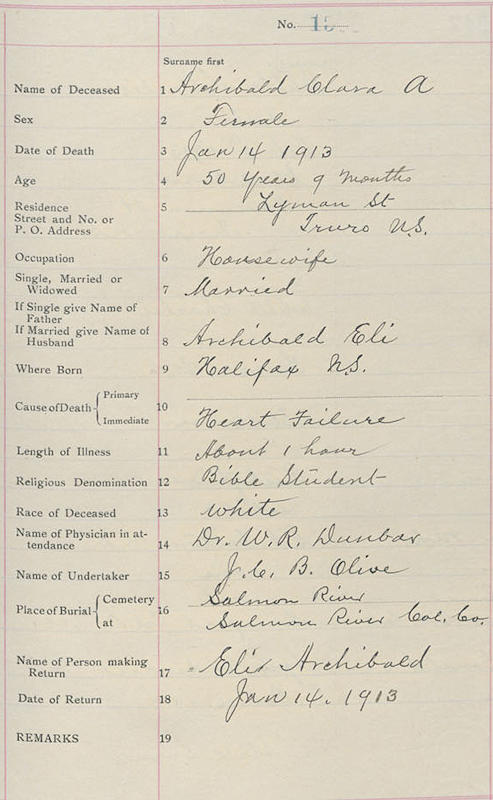 No. 15
Surname first
Name of Deceased 1 Archibald Clara A
Sex 2 Female
Date of Death 3 Jan 14 1913
Age 4 50 years 9 months
Residence
Street and No. or 5 Lyman St
P. O. Address Truro N.S.
Occupation 6 Housewife
Single, Married or
Widowed 7 Married
If Single give Name of
Father
If Married give Name of
Husband 8 Archibald Eli
Where Born 9 Halifax N.S.
Cause of Death Primary 10
Immediate Heart Failure
Length of Illness 11 About 1 hour
Religious Denomination 12 Bible Student
Race of Deceased 13 White
Name of Physician in at-
tendance 14 Dr. W. R. Dunbar
Name of Undertaker 15 J. C. B. Olive
Place of Burial Cemetery 16 Salmon River
at Salmon River Col. Co.
Name of Person making
Return 17 Eli Archibald
Date of Return 18 Jan 14. 1913
REMARKS 19